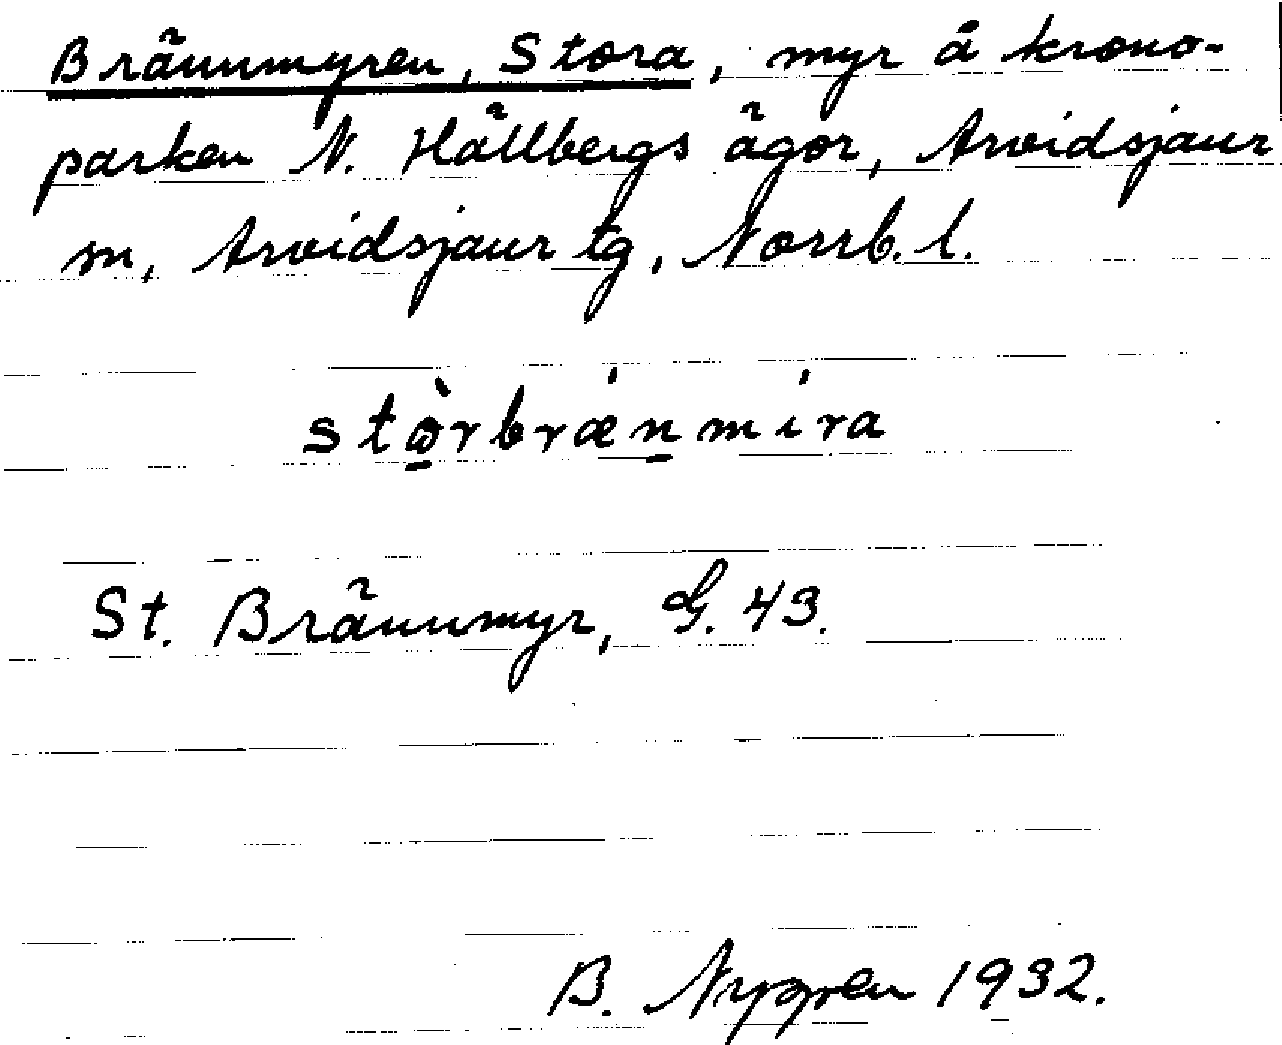 Brännmyren, Stora, myr å krono-
parken N. Hällbergs ägor, Arvidsjaur
sn, Arvidsjaur tg, Norrb. l.
stòrbrǽnmíra
St. Brännmyr, G. 43.
B. Nygren 1932.